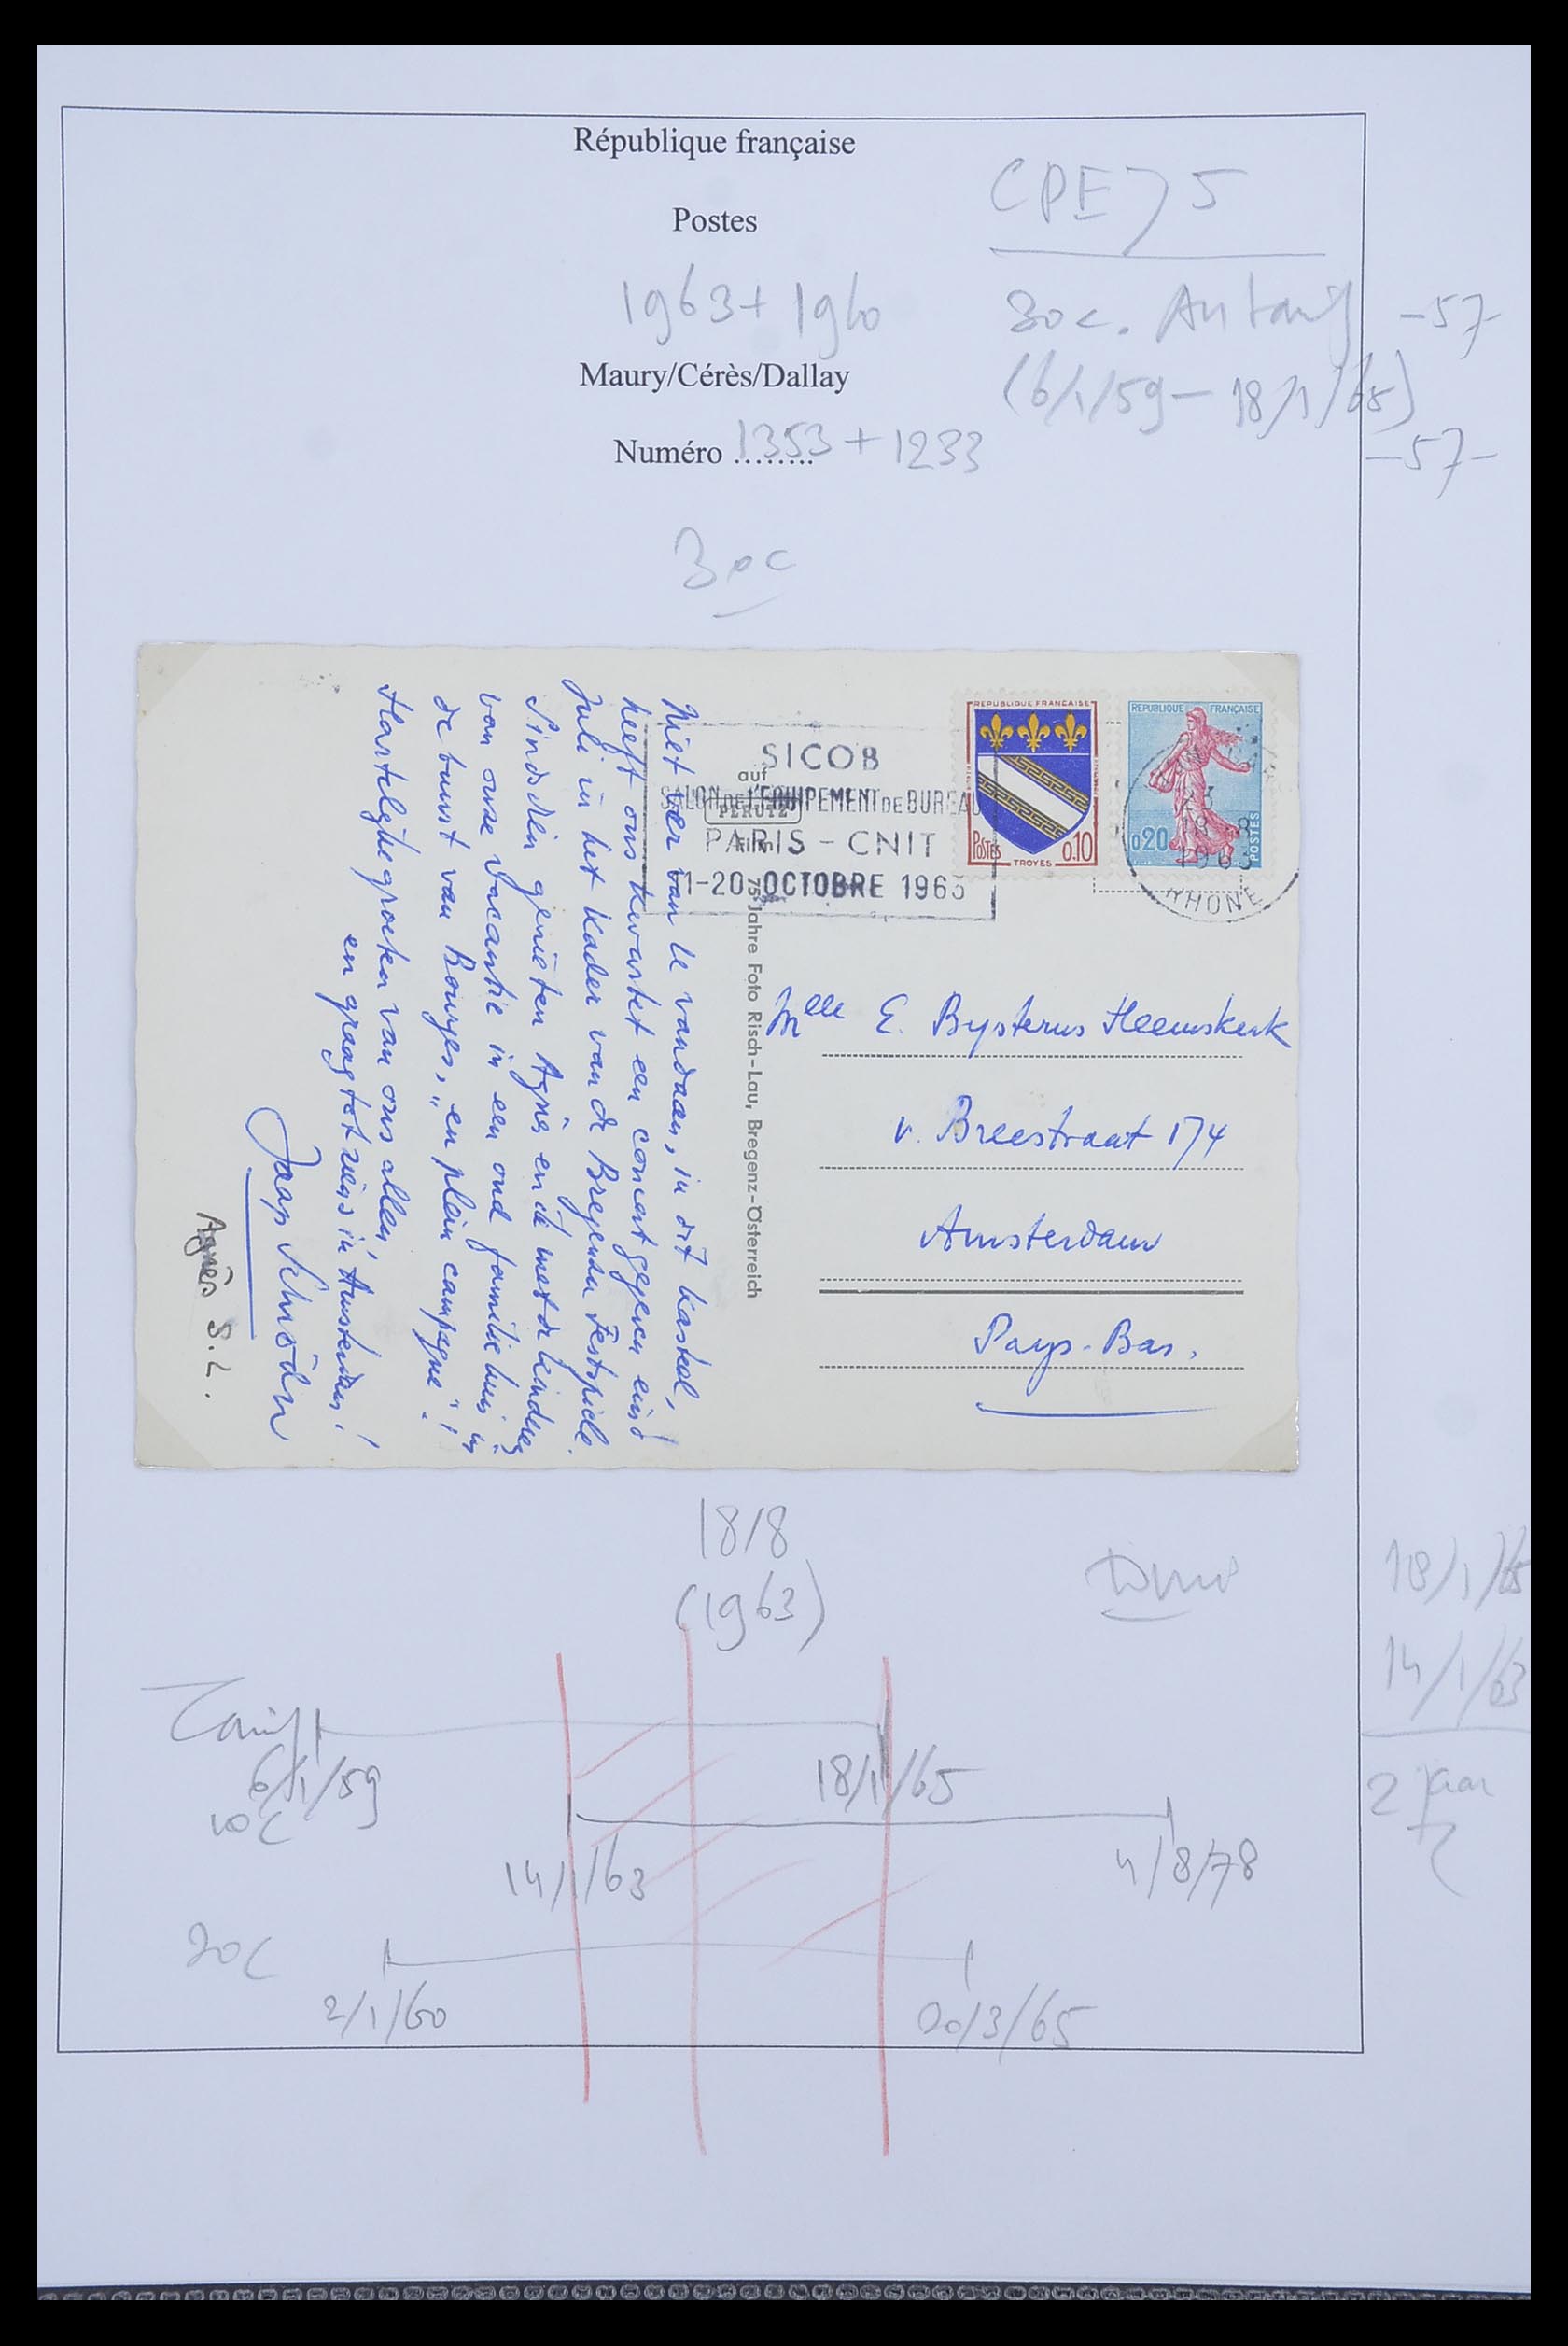 République française
CPE) 5
Postes
1963 + 1960
-57-
Maury/Cérès/Dallay
(6/1/59 - 18/1/65)
Numéro ........ 1353 + 1233
-57-
30c
SICOB
SALON DE L'EQUIPEMENT DE BUREAU
PARIS - CNIT
11-20 OCTOBRE 1963
auf
PERUTZ
Film
REPUBLIQUE FRANÇAISE
POSTES
TROYES
0.10
REPUBLIQUE FRANÇAISE
0,20
POSTES
23
18 - 8
1963
RHONE
Niet ver van U vandaan, in dit kasteel,
heeft ons kwartet een concert gegeven eind
Juli in het kader van de Bregenzer Festspiele.
Sindsdien genieten Agnès en ik met de kinderen
van onze vacantie in een oud familiehuis in
de buurt van Bourges, "en plein campagne"!
Hartelijke groeten van ons allen,
en graag tot ziens in Amsterdam!
Jaap Schröder
Agnès S.L.
75 Jahre Foto Risch-Lau, Bregenz-Österreich
Mlle E. Bysterus Heemskerk
v. Breestraat 174
Amsterdam
Pays-Bas.
18/8
(1963)
18/1/65
14/1/63
2 jaar
Tarif
6/1/59
18/1/65
10c
14/1/63
4/8/78
20c
2/1/60
20/3/65